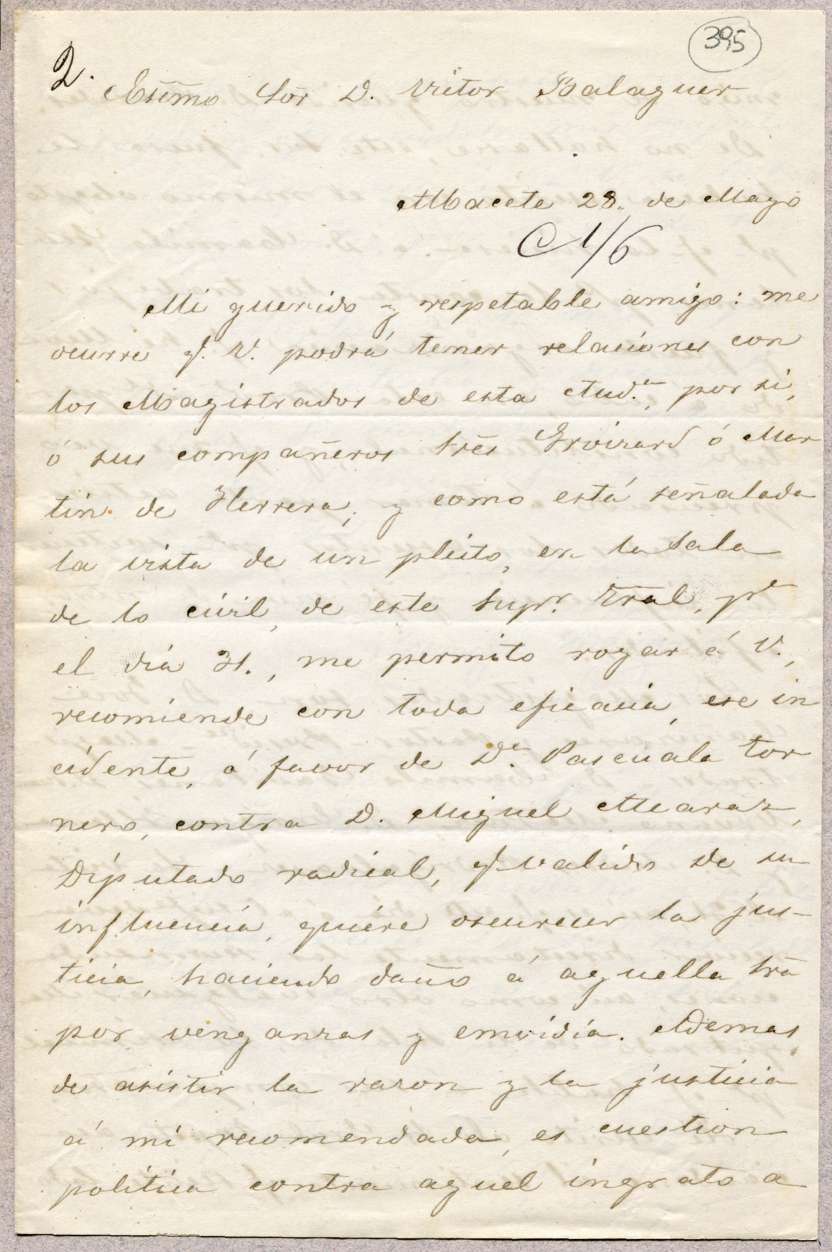 395
2.
Esc͠mo Sor D. Vítor Balaguer
Albacete 28. de Mayo
C 1/6
Mi querido y respetable amigo: me
ocurre q. V. podrá tener relaciones con
los Magistrados de esta Aud.ª, por si,
ó sus compañeros S͞res Groizard ó Mar
tin de Herrera; y como está señalada
la vista de un pleito, en la Sala
de lo civil, de este Supr. T͞ral, p.ª
el dia 31., me permito rogar á V.,
recomiende con toda eficacia, ese in
cidente, á favor de D.ª Pascuala Tor
nero, contra D. Miguel Alcaraz,
Diputado radical, q. valido de su
influencia, quiere oscurecer la jus-
ticia, haciendo daño á aquella S͞ra
por venganzas y emvidia. Ademas,
de asistir la razon y la justicia
á mi recomendada, es cuestion
politica contra aquel ingrato a